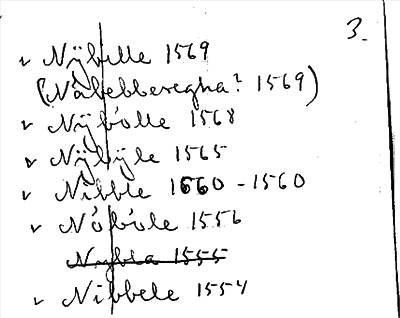 3.
v Nÿbille 1569
(Nåbebberegha? 1569)
v Nÿbölle 1568
v Nÿbÿle 1565
v Nibble 1660 - 1560
v Nóbóle 1556
Nybla 1555
v Nibbele 1554